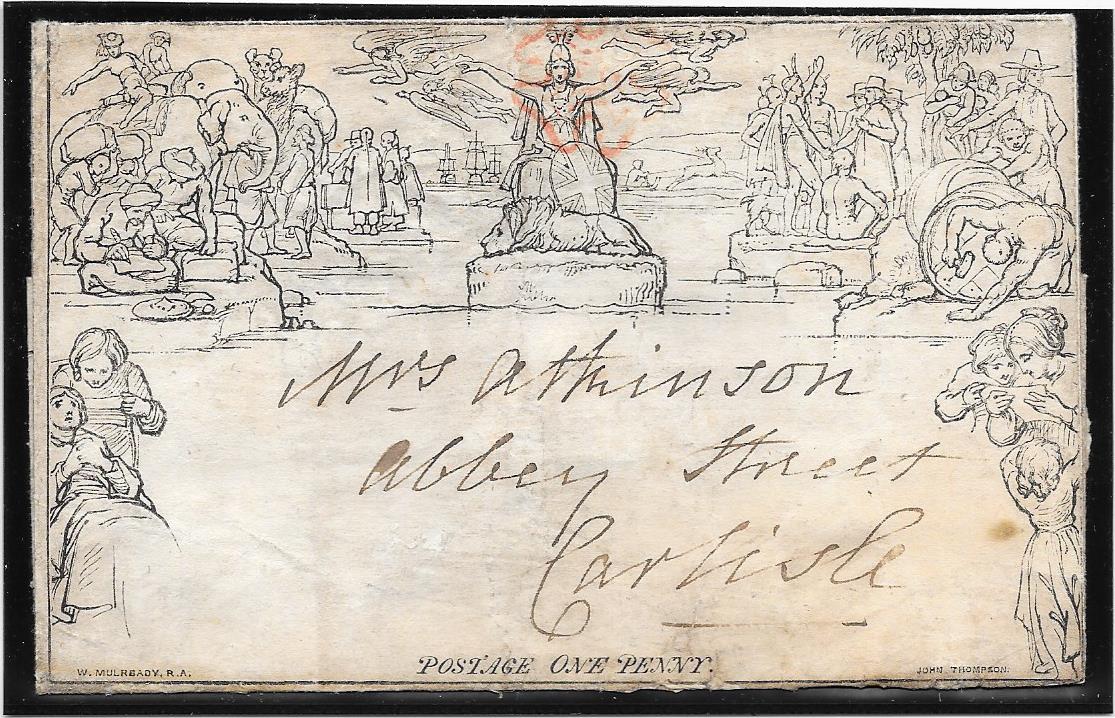 Mrs Atkinson
Abbey Street
Carlisle
POSTAGE ONE PENNY.
W. MULREADY, R.A.
JOHN THOMPSON.